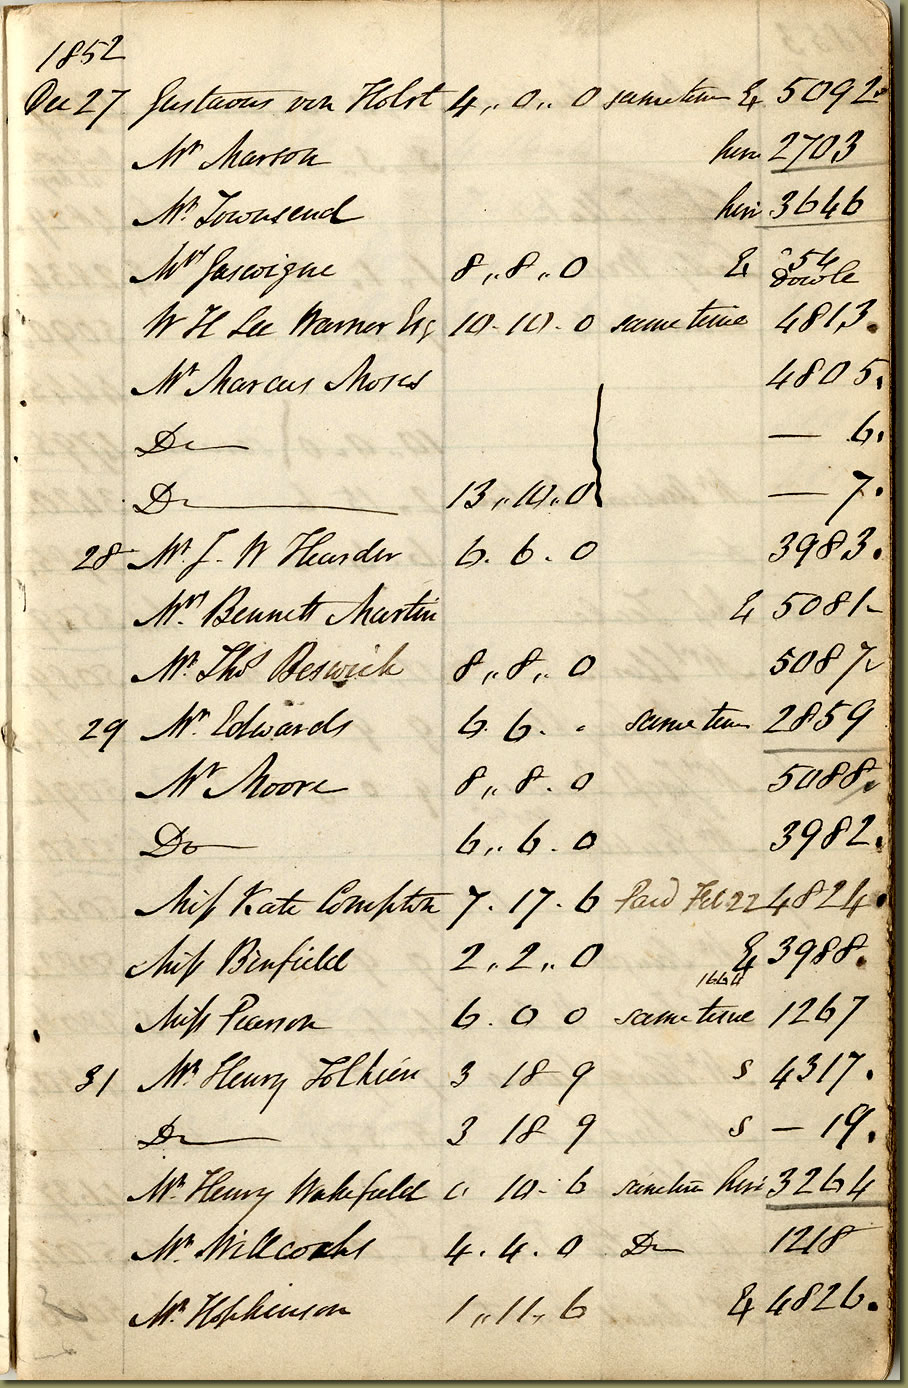 1852
Dec 27 Gustavus von Holst 4,, 0,, 0 same time & 5092
Mr Marson hire 2703
Mr Townsend hire 3646
Mrs Gascoigne 8,, 8,, 0 & 54 double
W H Lee Warner Esq 10. 10. 0 same time 4813.
Mr Marcus Moses 4805.
Do — 6.
Do 13,, 10,, 0 — 7.
28 Mr J. W Hearder 6. 6. 0 3983.
Mrs Bennett Martin & 5081
Mr Thos Beswick 8,, 8,, 0 5087
29 Mr Edwards 6. 6. - same time 2859
Mr Moore 8,, 8. 0 5088.
Do 6,, 6. 0 3982.
Miss Kate Compton 7. 17. 6 Paid Feb 22 4824.
Miss Binfield 2,, 2,, 0 & 3988.
1664
Miss Pearson 6. 0 0 same time 1267
31 Mr Henry Tolkien 3 18 9 s 4317.
Do 3 18 9 s — 19.
Mr Henry Wakefield 0 10. 6 same time hire 3264
Mr Willcocks 4. 4. 0 Do 1218
Mr Hopkinson 1,, 11,, 6 & 4826.